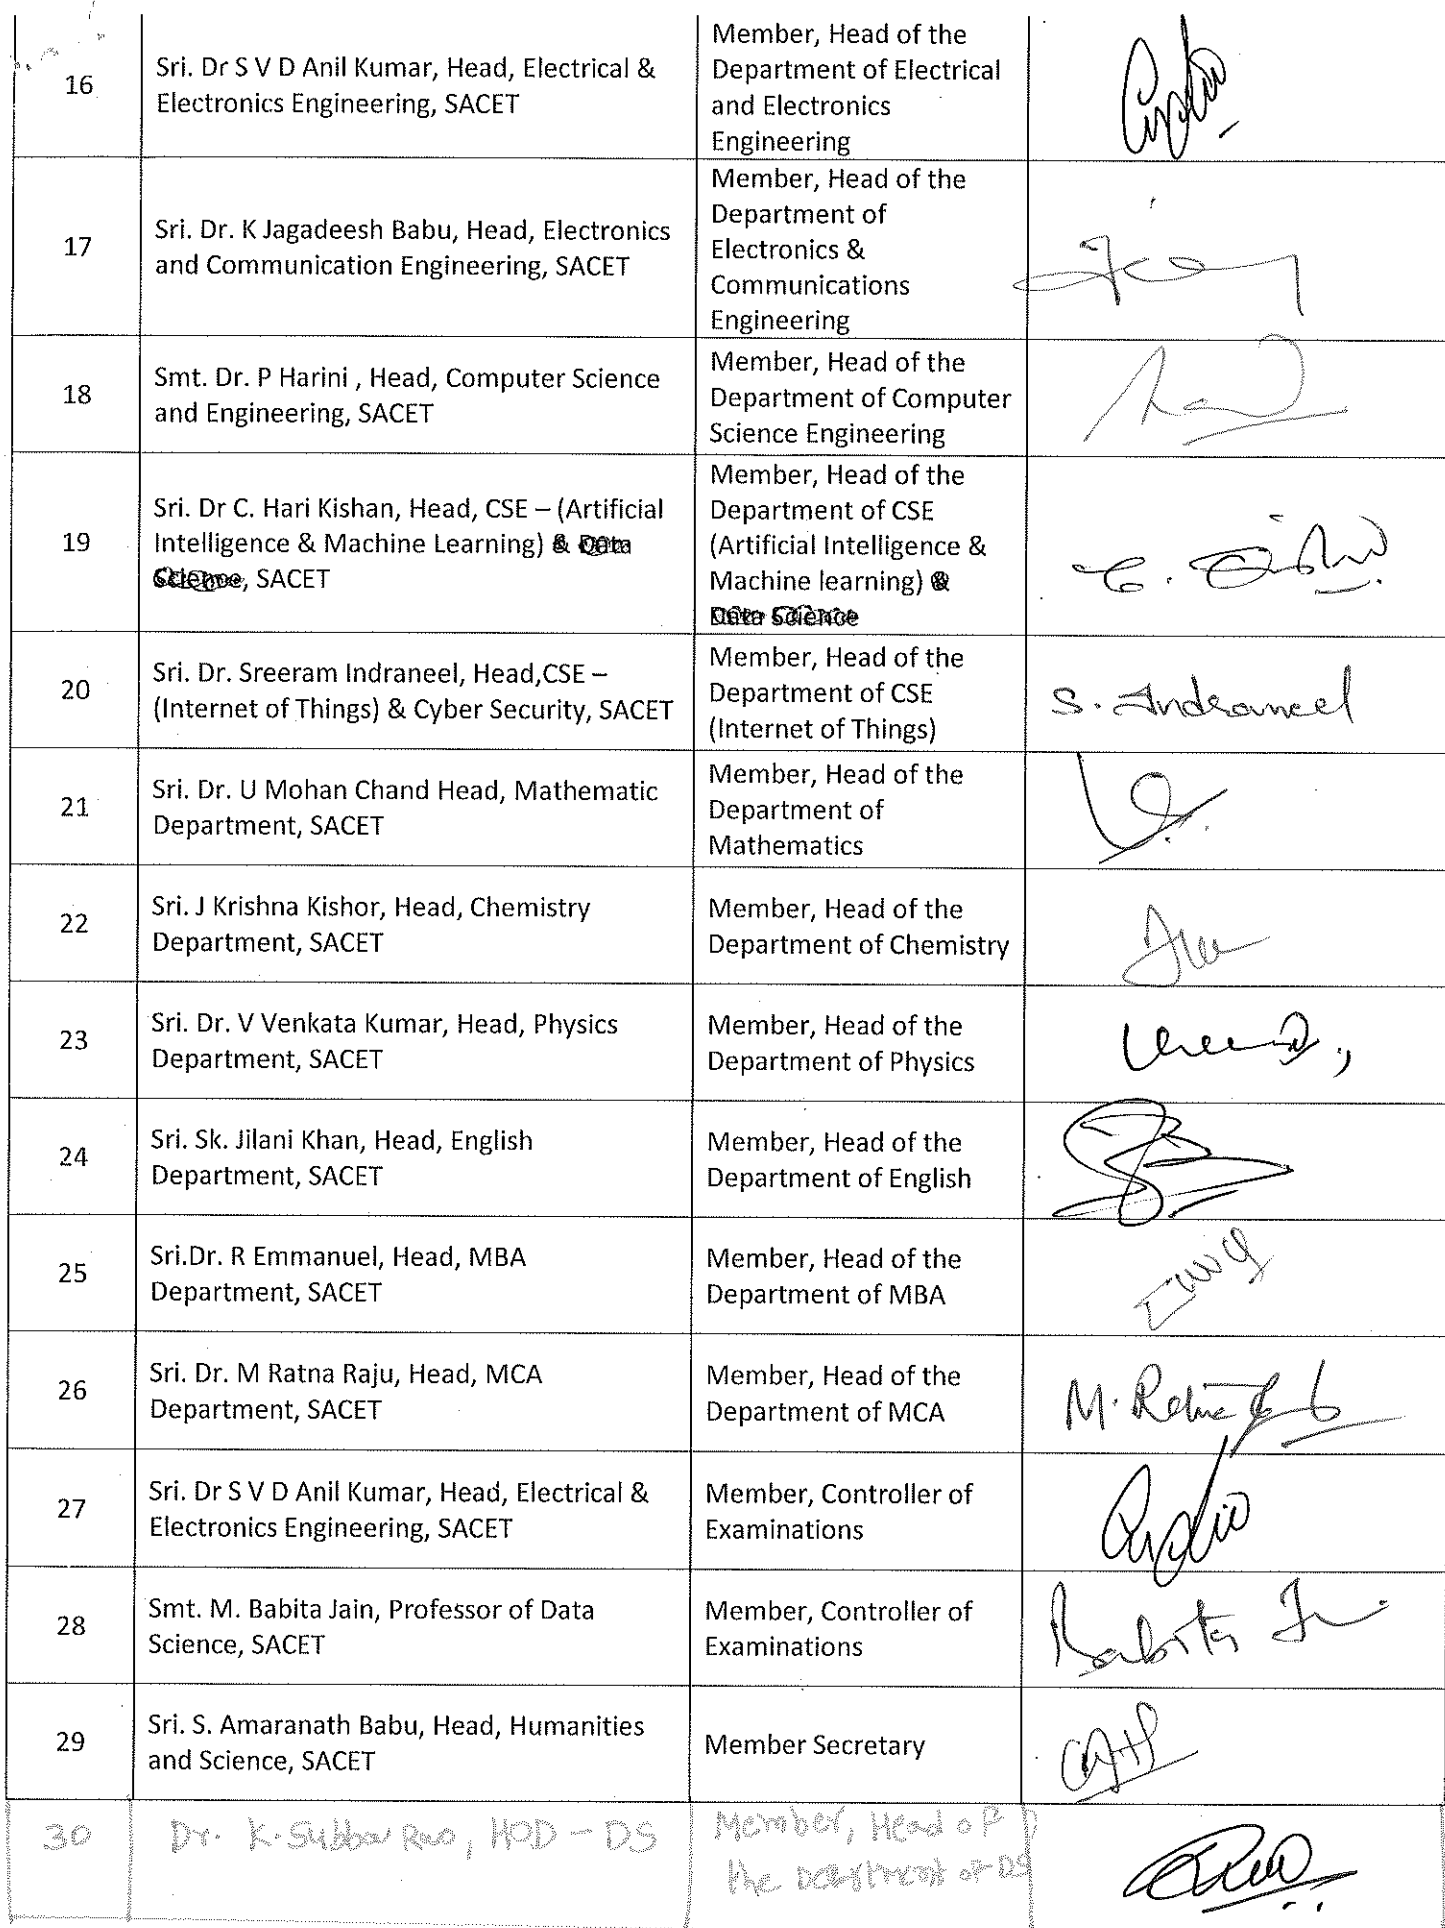 16
Sri. Dr S V D Anil Kumar, Head, Electrical &
Electronics Engineering, SACET
Member, Head of the
Department of Electrical
and Electronics
Engineering
17
Sri. Dr. K Jagadeesh Babu, Head, Electronics
and Communication Engineering, SACET
Member, Head of the
Department of
Electronics &
Communications
Engineering
18
Smt. Dr. P Harini , Head, Computer Science
and Engineering, SACET
Member, Head of the
Department of Computer
Science Engineering
19
Sri. Dr C. Hari Kishan, Head, CSE – (Artificial
Intelligence & Machine Learning) & Data
Science, SACET
Member, Head of the
Department of CSE
(Artificial Intelligence &
Machine learning) &
Data Science
20
Sri. Dr. Sreeram Indraneel, Head,CSE –
(Internet of Things) & Cyber Security, SACET
Member, Head of the
Department of CSE
(Internet of Things)
S. Indraneel
21
Sri. Dr. U Mohan Chand Head, Mathematic
Department, SACET
Member, Head of the
Department of
Mathematics
22
Sri. J Krishna Kishor, Head, Chemistry
Department, SACET
Member, Head of the
Department of Chemistry
23
Sri. Dr. V Venkata Kumar, Head, Physics
Department, SACET
Member, Head of the
Department of Physics
24
Sri. Sk. Jilani Khan, Head, English
Department, SACET
Member, Head of the
Department of English
25
Sri.Dr. R Emmanuel, Head, MBA
Department, SACET
Member, Head of the
Department of MBA
26
Sri. Dr. M Ratna Raju, Head, MCA
Department, SACET
Member, Head of the
Department of MCA
27
Sri. Dr S V D Anil Kumar, Head, Electrical &
Electronics Engineering, SACET
Member, Controller of
Examinations
28
Smt. M. Babita Jain, Professor of Data
Science, SACET
Member, Controller of
Examinations
Babita
29
Sri. S. Amaranath Babu, Head, Humanities
and Science, SACET
Member Secretary
30
Dr. K. Subba Rao, HOD – DS
Member, Head of
the Department of DS